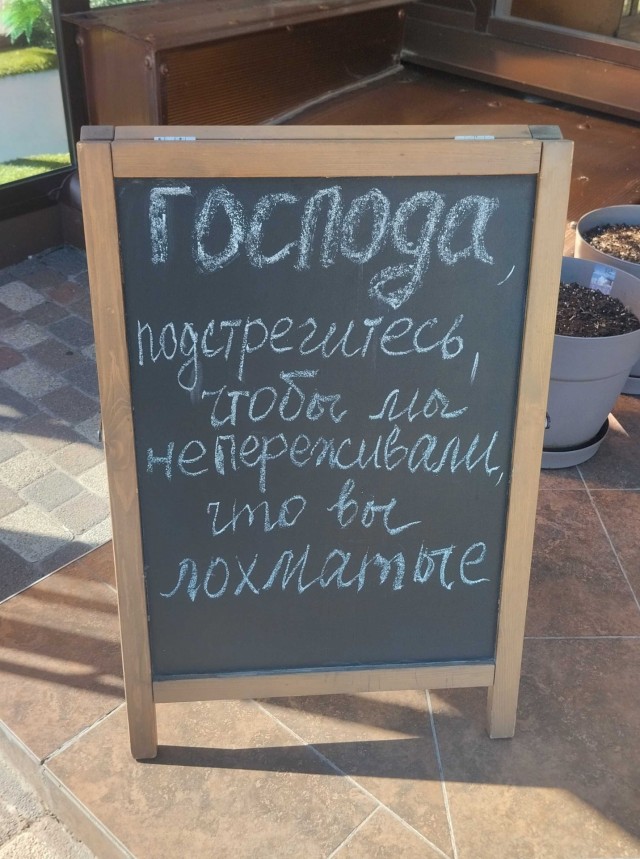 Господа,
подстрегитесь,
чтобы мы
не переживали,
что вы
лохматые